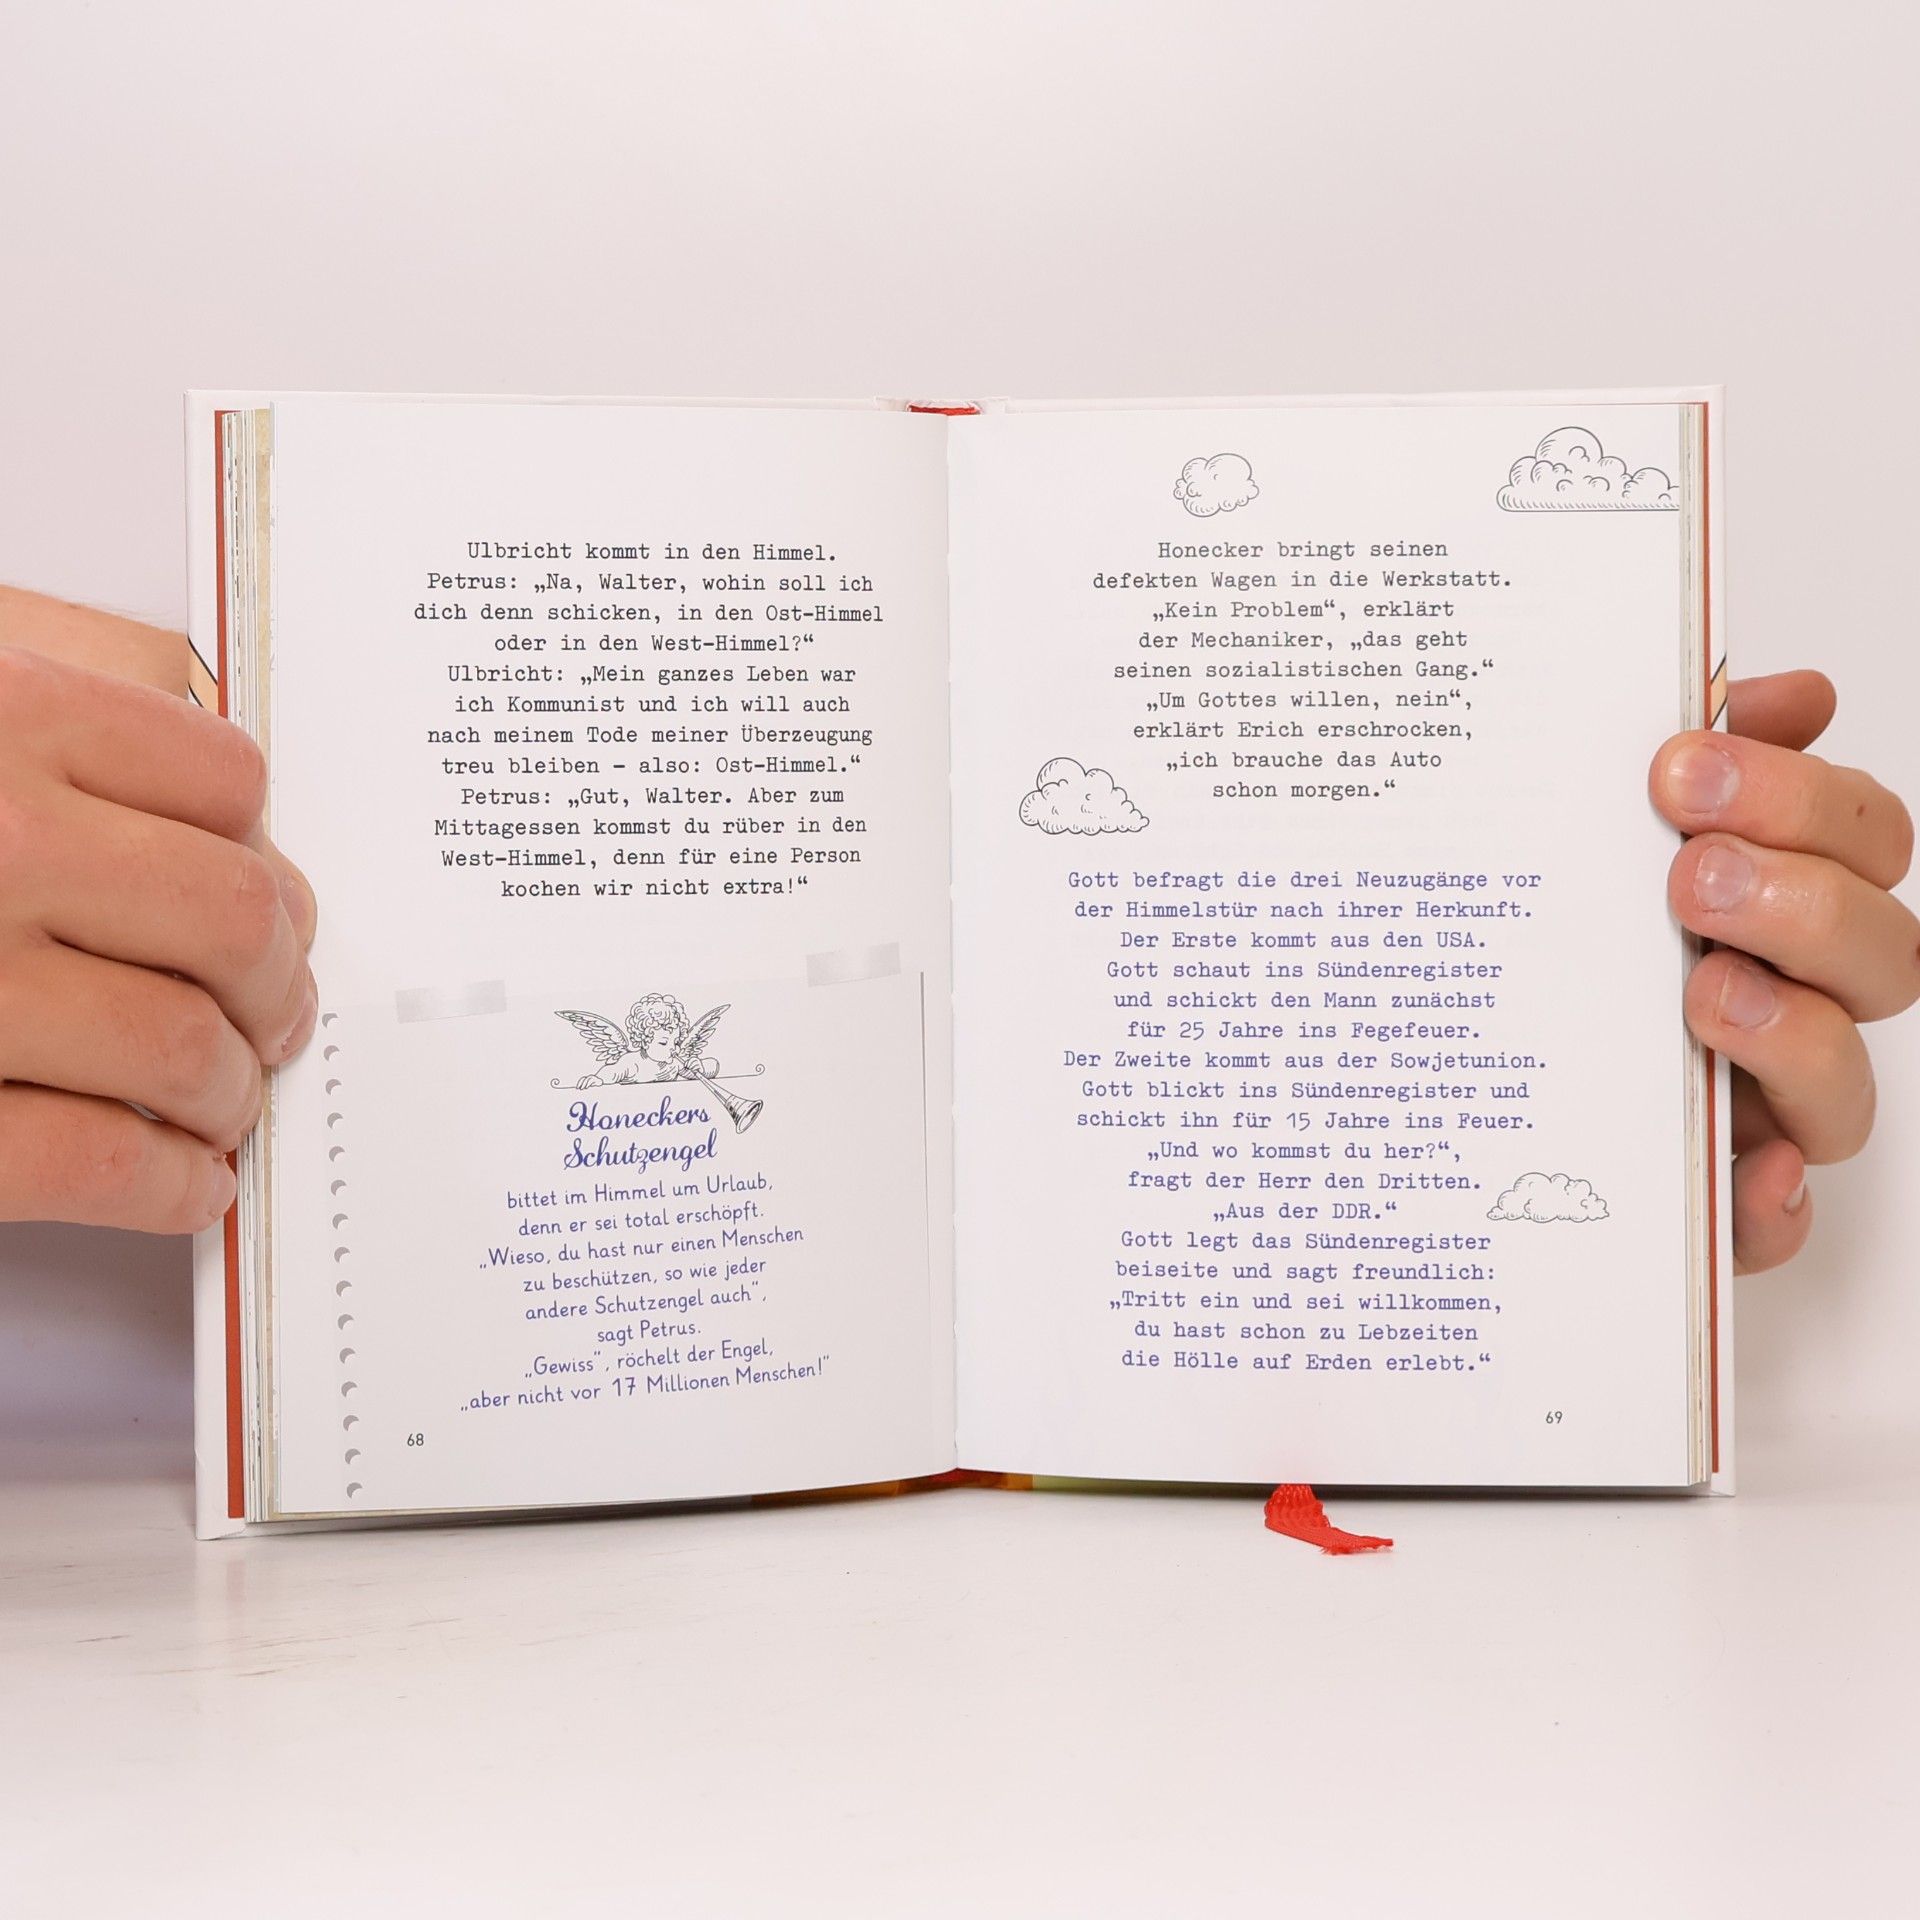 Ulbricht kommt in den Himmel.
Petrus: „Na, Walter, wohin soll ich
dich denn schicken, in den Ost-Himmel
oder in den West-Himmel?“
Ulbricht: „Mein ganzes Leben war
ich Kommunist und ich will auch
nach meinem Tode meiner Überzeugung
treu bleiben – also: Ost-Himmel.“
Petrus: „Gut, Walter. Aber zum
Mittagessen kommst du rüber in den
West-Himmel, denn für eine Person
kochen wir nicht extra!“
Honeckers
Schutzengel
bittet im Himmel um Urlaub,
denn er sei total erschöpft.
„Wieso, du hast nur einen Menschen
zu beschützen, so wie jeder
andere Schutzengel auch“,
sagt Petrus.
„Gewiss“, röchelt der Engel,
„aber nicht vor 17 Millionen Menschen!“
68
Honecker bringt seinen
defekten Wagen in die Werkstatt.
„Kein Problem“, erklärt
der Mechaniker, „das geht
seinen sozialistischen Gang.“
„Um Gottes willen, nein“,
erklärt Erich erschrocken,
„ich brauche das Auto
schon morgen.“
Gott befragt die drei Neuzugänge vor
der Himmelstür nach ihrer Herkunft.
Der Erste kommt aus den USA.
Gott schaut ins Sündenregister
und schickt den Mann zunächst
für 25 Jahre ins Fegefeuer.
Der Zweite kommt aus der Sowjetunion.
Gott blickt ins Sündenregister und
schickt ihn für 15 Jahre ins Feuer.
„Und wo kommst du her?“,
fragt der Herr den Dritten.
„Aus der DDR.“
Gott legt das Sündenregister
beiseite und sagt freundlich:
„Tritt ein und sei willkommen,
du hast schon zu Lebzeiten
die Hölle auf Erden erlebt.“
69